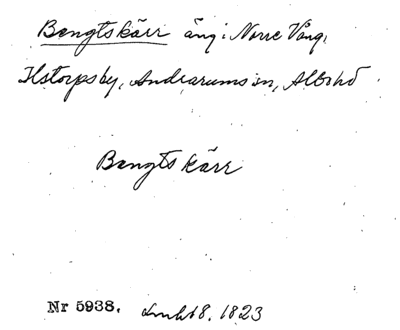 Bengtskärr äng i Norre Vång,
Ilstorpsby, Andrarums sn, Albohd
Bengts kärr
Nr 5938. 1823